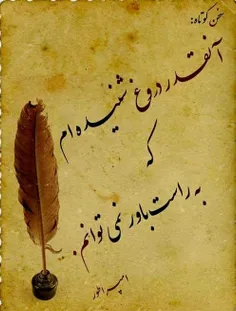 سخن کوتاه:
آنقدر دروغ شنیده ام
که
به راست باور نمی توانم.
امپراطور